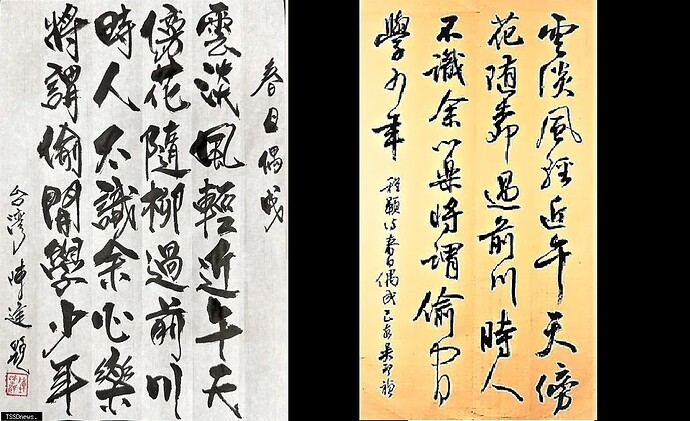 春日偶成
雲淡風輕近午天
傍花隨柳過前川
時人不識余心樂
將謂偷閒學少年
台灣 陳進題
TSSDnews.
雲淡風輕近午天傍
花隨柳過前川時人
不識余心樂將謂偷閒
學少年
程顥詩春日偶成